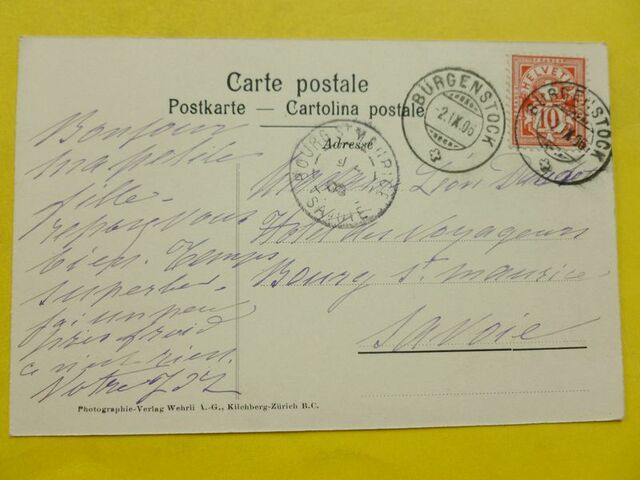 Carte postale
Postkarte — Cartolina postale
Adresse
BÜRGENSTOCK
-2.IX.06
HELVETIA
10
BÜRGENSTOCK
IX.06
BOURG-ST MAURICE
SAVOIE
Bonjour
ma petite
fille
reposez vous
bien. Temps
superbe.
j'ai un peu
pris froid
ce n'est rien.
Votre
Léon
Hôtel des Voyageurs
Bourg St Maurice
Savoie
Photographie-Verlag Wehrli A.-G., Kilchberg-Zürich B.C.